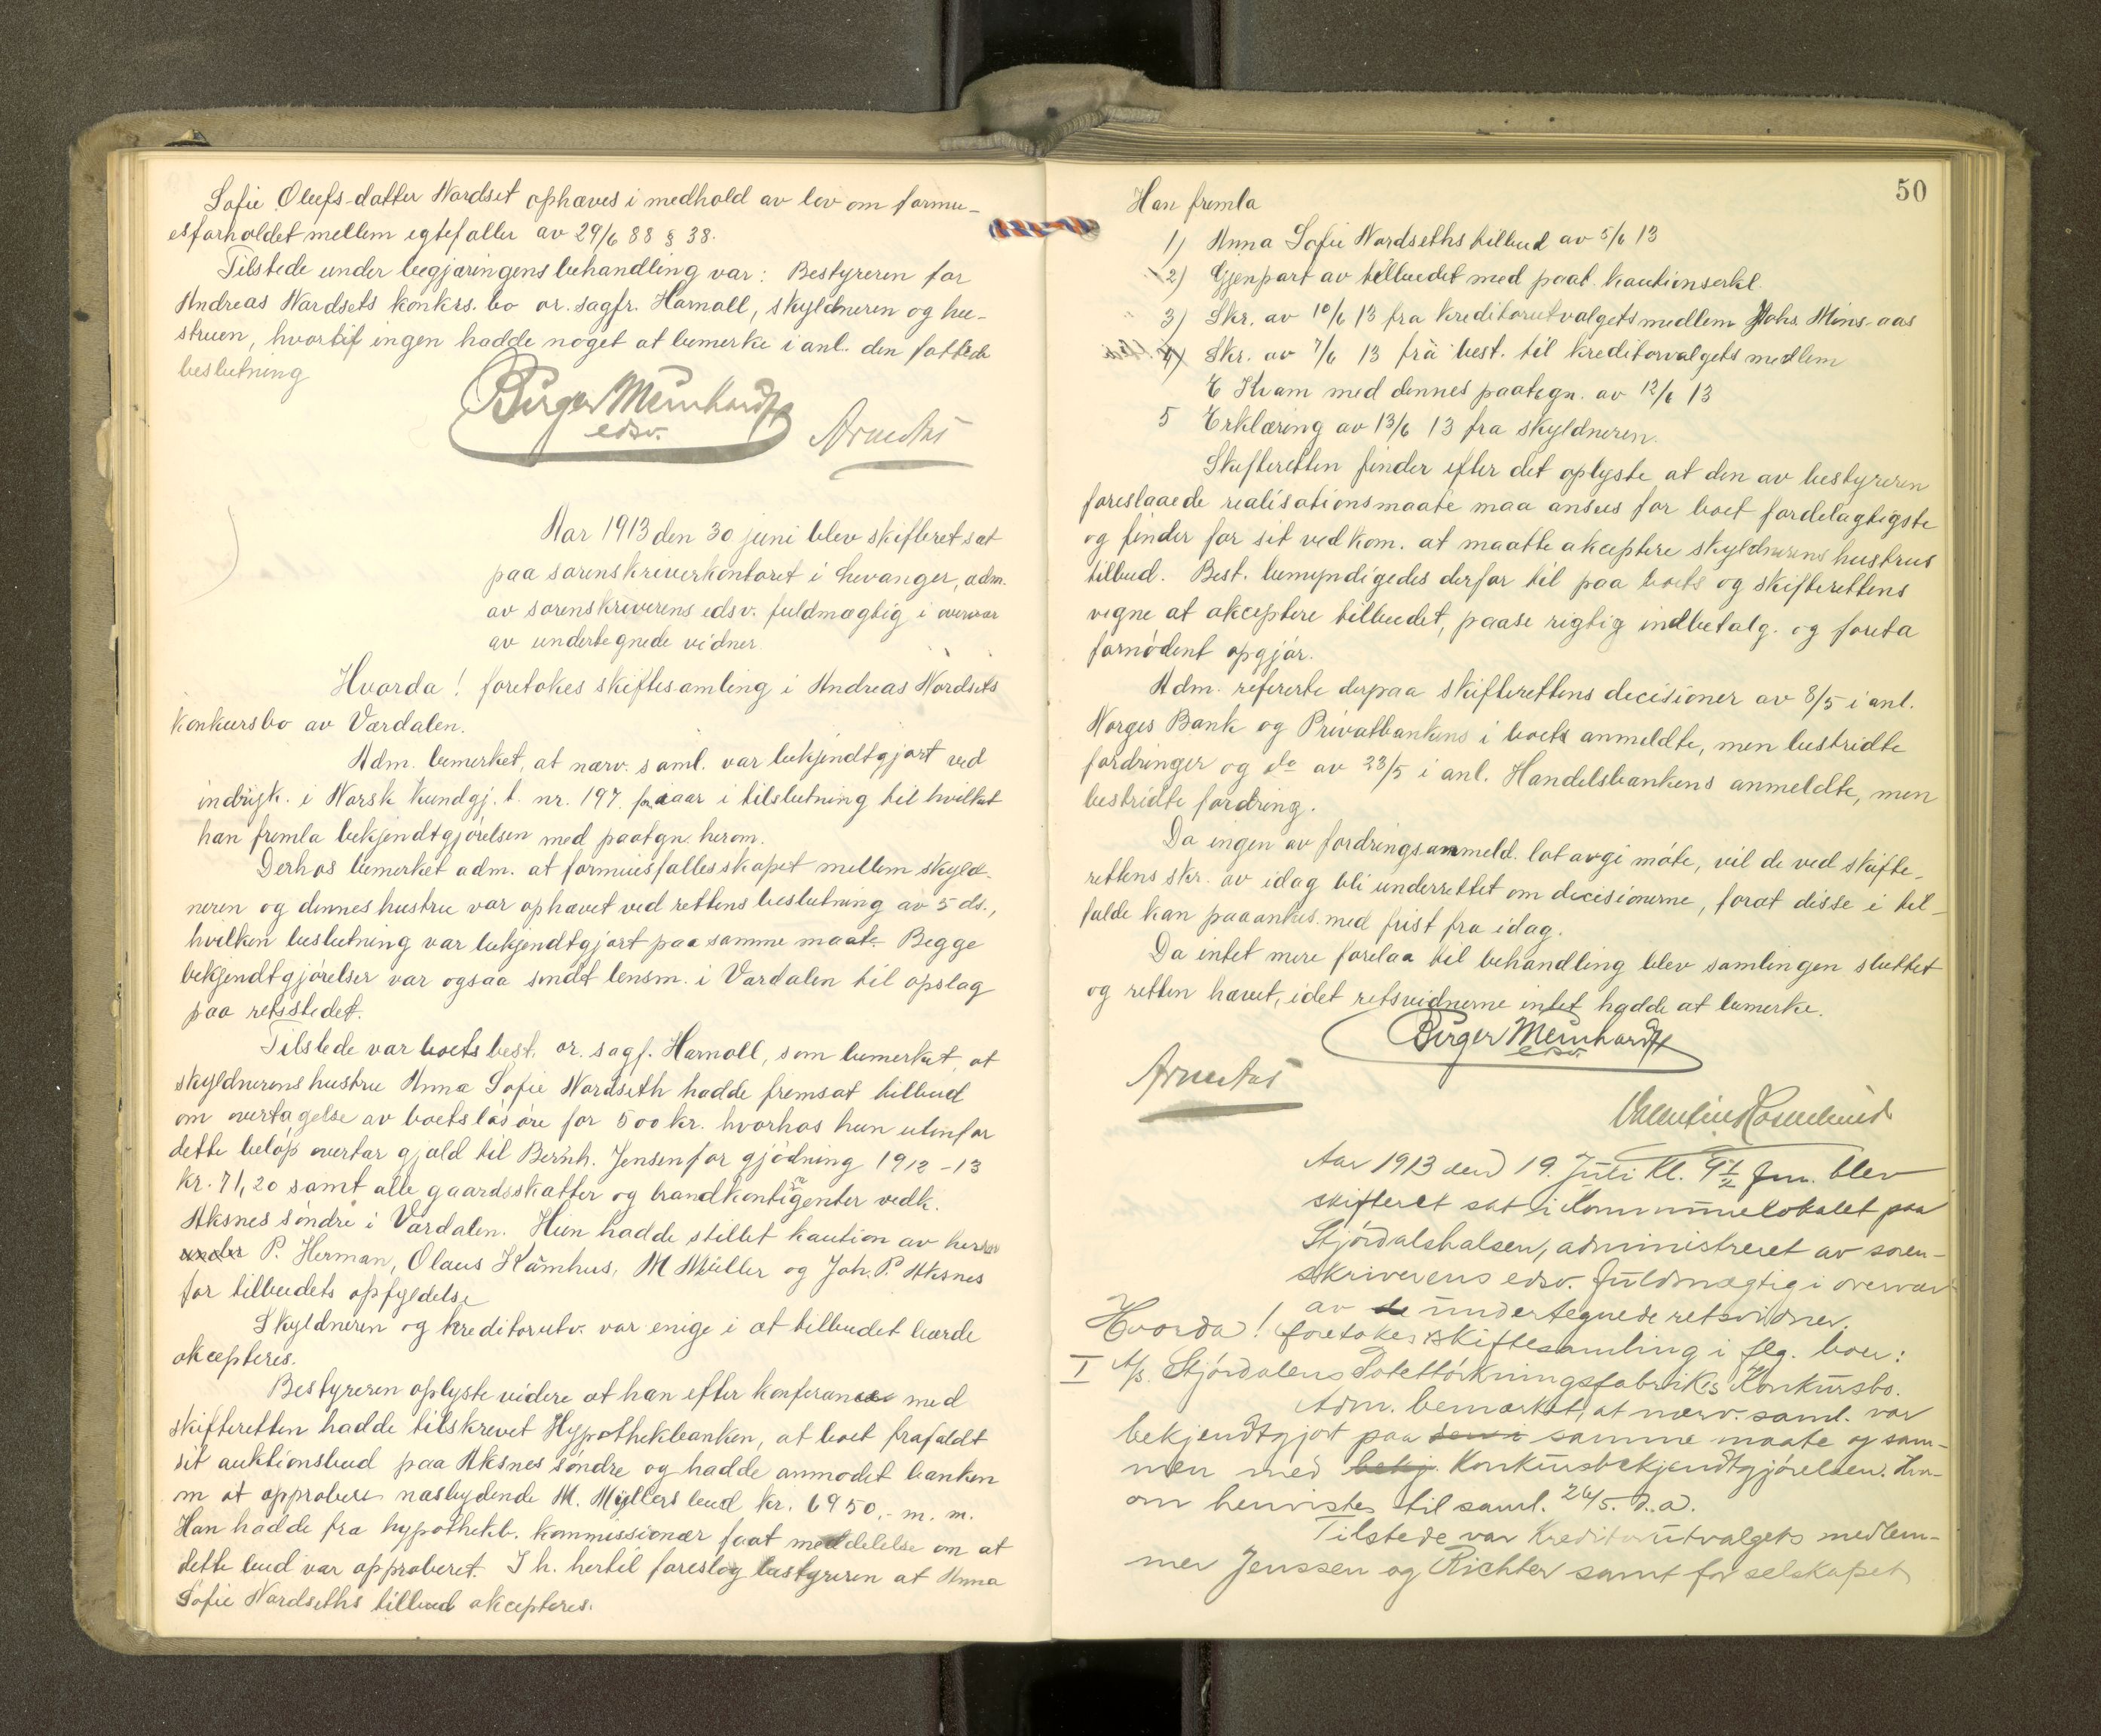 Sofie Olufs-datter Nordset ophæves i medhold av lov om formu-
esforholdet mellem egtefæller av 29/6 88 § 38.
Tilstede under begjæringens behandling var: Bestyreren for
Andreas Nordsets konkrs. bo or. sagfr. Harnoll, skyldneren og hu-
struen, hvortil ingen hadde noget at bemerke i anl. den fattede
beslutning
Birger Meinhardt
edsv.
Aar 1913 den 30 juni blev skifteret sat
paa sorenskriverkontoret i Levanger, adm.
av sorenskriverens edsv. fuldmægtig i overvær
av undertegnede vidner
Hvorda! foretokes skiftesamling i Andreas Nordsets
konkursbo av Værdalen.
Adm. bemerket, at nærv. saml. var bekjendtgjort ved
indryk. i Norsk Kundgj. t. nr. 197. f. aar i tilslutning til hvilket
han fremla bekjendtgjørelsen med paategn. herom.
Derhos bemerket adm. at formuesfællesskapet mellem skyld-
neren og dennes hustru var ophævet ved rettens beslutning av 5 ds.,
hvilken beslutning var bekjendtgjort paa samme maate. Begge
bekjendtgjørelser var ogsaa sendt lensm. i Værdalen til opslag
paa retsstedet.
Tilstede var boets best. or. sagf. Harnoll, som bemerket, at
skyldnerens hustru Anna Sofie Nordseth hadde fremsat tilbud
om overtagelse av boets løsøre for 500 kr. hvorhos hun utenfor
dette beløp overtar gjæld til Bernh. Jensen for gjødning 1912-13
kr. 71,20 samt alle gaardsskatter og brandkontigenter vedk.
Aksnes søndre i Værdalen. Hun hadde stillet kaution av herrer
P. Herman, Olaus Kåmhus, M Müller og Joh. P. Aksnes
for tilbudets opfyldelse
Skyldneren og kreditorutv. var enige i at tilbudet burde
akcepteres.
Bestyreren oplyste videre at han efter konferanse med
skifteretten hadde tilskrevet Hypothekbanken, at boet frafaldt
sit auktionsbud paa Aksnes søndre og hadde anmodet banken
om at approbere næstbydende M. Müllers bud kr. 6950,- m. m.
Han hadde fra hypothekb. kommissionær faat meddelelse om at
dette bud var approberet. I h. hertil foreslog bestyreren at Anna
Sofie Nordseths tilbud akcepteres.
50
Han fremla
1) Anna Sofie Nordseths tilbud av 5/6 13
2) Gjenpart av tilbudet med paat. kautionserkl.
3) Skr. av 10/6 13 fra kreditorutvalgets medlem Johs. Mins-aas
4) Skr. av 7/6 13 frå best. til kreditorvalgets medlem
E Kvam med dennes paategn. av 12/6 13
5 Erklæring av 13/6 13 fra skyldneren.
Skifteretten finder efter det oplyste at den av bestyreren
foreslaaede realisationsmaate maa ansees for boet fordelagtigste
og finder for sit vedkom. at maatte akceptere skyldnerens hustrus
tilbud. Best. bemyndigedes derfor til paa boets og skifterettens
vegne at akceptere tilbudet, paase rigtig indbetalg. og foreta
fornødent opgjør.
Adm. refererte derpaa skifterettens decisioner av 8/5 i anl.
Norges Bank og Privatbankens i boets anmeldte, men bestridte
fordringer og do av 23/5 i anl. Handelsbankens anmeldte, men
bestridte fordring.
Da ingen av fordringsanmeld. lot avgi møte, vil de ved skifte-
rettens skr. av idag bli underrettet om decisionerne, forat disse i til-
fælde kan paaankes med frist fra idag.
Da intet mere forelaa til behandling blev samlingen sluttet
og retten hævet, idet retsvidnerne intet hadde at bemerke.
Birger Meinhardt
edsv.
Valentin Rosenlund
Aar 1913 den 19. Juli kl. 9 1/2 fm. blev
skifteret sat i Kommunelokalet paa
Stjørdalshalsen, administreret av soren-
skriverens edsv. fuldmægtig i overvær
av de undertegnede retsvidner.
Hvorda! foretokes skiftesamling i flg. boer:
I A/s. Stjørdalens Potettørkningsfabriks Konkursbo.
Adm. bemærket, at nærv. saml. var
bekjendtgjort paa samme maate og sam-
men med bekj. Konkursbekjendtgjørelsen. Hvor-
om henvistes til saml. 26/5. d.a.
Tilstede var Kreditorutvalgets medlem-
mer Jenssen og Richter samt for selskapet